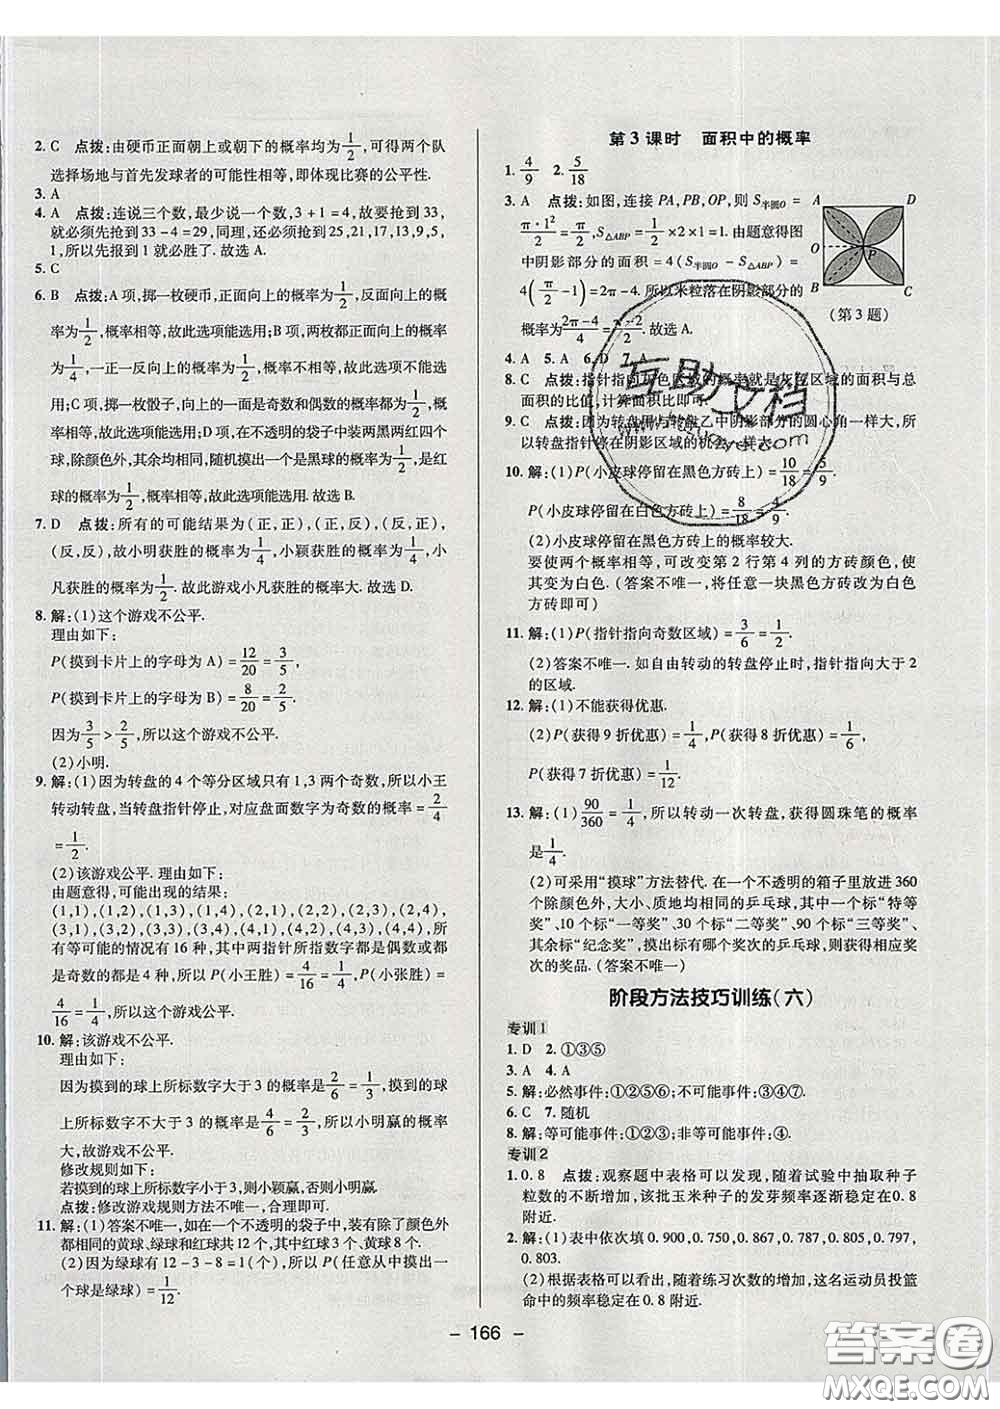 2. C　点拨:由硬币正面朝上或朝下的概率均为1/2,可得两个队
选择场地与首先发球者的可能性相等,即体现比赛的公平性.
3. A
4. A　点拨:连说三个数,最少说一个数,3+1=4,故要抢到33,
就必须先抢到33-4=29,同理,还必须抢到25,21,17,13,9,5,
1,所以先报到1就必胜了.故选A.
5. C
6. B　点拨:A项,掷一枚硬币,正面向上的概率为1/2,反面向上的概
率为1/2,概率相等,故此选项能选用;B项,两枚都正面向上的概率为
1/4,一正一反向上的概率为1/2,概率不相等,故此选项不能
选用;C项,掷一枚骰子,向上的一面是奇数和偶数的概率都为
1/2,概率相等,故此选项能选用;D项,在不透明的袋子中装两黑两红四个
球,除颜色外,其余均相同,随机摸出一个是黑球的概率为1/2,是红
球的概率为1/2,概率相等,故此选项能选用.
7. D　点拨:所有的可能结果为(正,正),(正,反),(反,正),
(反,反),故小明获胜的概率为1/4,小颖获胜的概率为1/4,小
凡获胜的概率为1/2.故此游戏小凡获胜的概率大.故选D.
8. 解:(1)这个游戏不公平.
理由如下:
P(摸到卡片上的字母为A)=12/20=3/5,
P(摸到卡片上的字母为B)=8/20=2/5.
因为3/5>2/5,所以这个游戏不公平.
(2)小明.
9. 解:(1)因为转盘的4个等分区域只有1,3两个奇数,所以小王
转动转盘,当转盘指针停止,对应盘面数字为奇数的概率=2/4
=1/2.
(2)该游戏公平.理由如下:
由题意得,可能出现的结果:
(1,1),(1,2),(1,3),(1,4),(2,1),(2,2),(2,3),(2,4),
(3,1),(3,2),(3,3),(3,4),(4,1),(4,2),(4,3),(4,4),所
有等可能的情况有16种,其中两指针所指数字都是偶数或都
是奇数的都是4种,所以P(小王胜)=4/16=1/4,P(小张胜)=
4/16=1/4,所以这个游戏公平.
10. 解:该游戏不公平.
理由如下:
因为摸到的球上所标数字大于3的概率是2/6=1/3,摸到的球
上所标数字不大于3的概率是4/6=2/3,所以小明赢的概率
大,故游戏不公平.
修改规则如下:
若摸到的球上所标数字小于3,则小颖赢,否则小明赢.
点拨:修改游戏规则方法不唯一,合理即可.
11. 解:(1)答案不唯一,如在一个不透明的袋子中,装有除了颜色外
都相同的黄球、绿球和红球共12个,其中红球3个、黄球8个.
(2)因为绿球有12-3-8=1(个),所以P(任意从中摸出一
个球是绿球)=1/12.
第3课时　面积中的概率
1. 4/9　2. 5/18
3. A　点拨:如图,连接PA,PB,OP,则S半圆O=
π·1²/2=π/2,S△ABP=1/2×2×1=1.由题意得图
中阴影部分的面积=4(S半圆O-S△ABP)=
4(π/2-1)=2π-4.所以米粒落在阴影部分的
概率为2π-4/4=π-2/2.故选A.
A
D
O
P
B
C
(第3题)
4. A　5. A　6. D　7. A
8. C　点拨:指针指向灰色区域的概率就是灰色区域的面积与总
面积的比值,计算面积比即可.
9. C　点拨:因为转盘甲与转盘乙中阴影部分的圆心角一样大,所
以转盘指针停在阴影区域的机会一样大.
10. 解:(1)P(小皮球停留在黑色方砖上)=10/18=5/9,
P(小皮球停留在白色方砖上)=8/18=4/9.
(2)小皮球停留在黑色方砖上的概率较大.
要使两个概率相等,可改变第2行第4列的方砖颜色,使
其变为白色.(答案不唯一,将任意一块黑色方砖改为白色
方砖即可)
11. 解:(1)P(指针指向奇数区域)=3/6=1/2.
(2)答案不唯一.如自由转动的转盘停止时,指针指向大于2
的区域.
12. 解:(1)不能获得优惠.
(2)P(获得9折优惠)=1/4,P(获得8折优惠)=1/6,
P(获得7折优惠)=1/12.
13. 解:(1)90/360=1/4,所以转动一次转盘,获得圆珠笔的概率
是1/4.
(2)可采用“摸球”方法替代.在一个不透明的箱子里放进360
个除颜色外,大小、质地均相同的乒乓球,其中1个标“特等
奖”、10个标“一等奖”、30个标“二等奖”、90个标“三等奖”、
其余标“纪念奖”,摸出标有哪个奖次的乒乓球,则获得相应奖
次的奖品.(答案不唯一)
阶段方法技巧训练(六)
专训1
1. D　2. ①③⑤
3. A　4. A
5. 解:必然事件:①②⑤⑥;不可能事件:③④⑦.
6. C　7. 随机
8. 解:等可能事件:①②③;非等可能事件:④.
专训2
1. 0.8　点拨:观察题中表格可以发现,随着试验中抽取种子
粒数的不断增加,该批玉米种子的发芽频率逐渐稳定在0.8
附近.
2. 解:(1)表中依次填0.900,0.750,0.867,0.787,0.805,0.797,
0.805,0.803.
(2)根据表格可以看出,随着练习次数的增加,这名运动员投篮
命中的频率稳定在0.8附近.
- 166 -
互助文档
答案圈
MXQE.COM